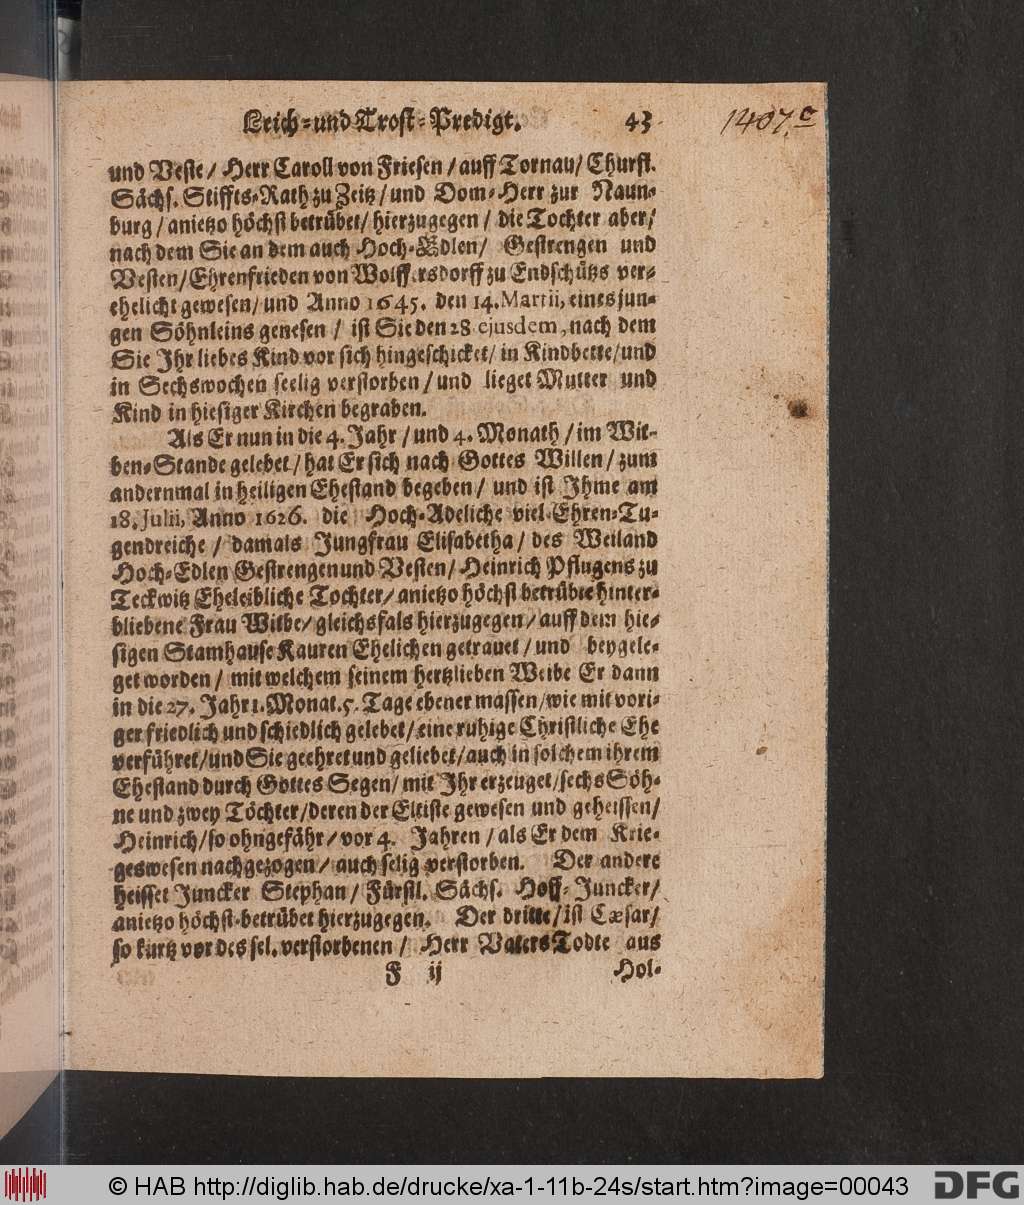 Leich-und Trost-Predigt. 43 1407.c
und Veste / Herr Caroll von Friesen / auff Tornau / Churfl.
Sächs. Stiffts-Rath zu Zeitz / und Dom-Herr zur Naun-
burg / anietzo höchst betrübet / hierzugegen / die Tochter aber /
nach dem Sie an dem auch Hoch-Edlen / Gestrengen und
Vesten / Ehrenfrieden von Wolffersdorff zu Endschütz ver-
ehelicht gewesen / und Anno 1645. den 14. Martii, eines jun-
gen Söhnleins genesen / ist Sie den 28 ejusdem, nach dem
Sie Ihr liebes Kind vor sich hingeschicket / in Kindbette / und
in Sechswochen seelig verstorben / und lieget Mutter und
Kind in hiesiger Kirchen begraben.
Als Er nun in die 4. Jahr / und 4. Monath / im Wit-
ben-Stande gelebet / hat Er sich nach Gottes Willen / zum
andernmal in heiligen Ehestand begeben / und ist Ihme am
18. Julii, Anno 1626. die Hoch-Adeliche viel Ehren-Tu-
gendreiche / damals Jungfrau Elisabetha / des Weiland
Hoch-Edlen Gestrengen und Vesten / Heinrich Pflugens zu
Teckwitz Eheleibliche Tochter / anietzo höchst betrübte hinter-
bliebene Frau Witbe / gleichsfals hierzugegen / auff dem hie-
sigen Stamhause Kauren Ehelichen getrauet / und beygele-
get worden / mit welchem seinem hertzlieben Weibe Er dann
in die 27. Jahr 1. Monat. 5. Tage ebener massen / wie mit vori-
ger friedlich und schiedlich gelebet / eine ruhige Christliche Ehe
verführet / und Sie geehret und geliebet / auch in solchem ihrem
Ehestand durch Gottes Segen / mit Ihr erzeuget / sechs Söh-
ne und zwey Töchter / deren der Eltiste gewesen und geheissen /
Heinrich / so ohngefähr / vor 4. Jahren / als Er dem Krie-
geswesen nachgezogen / auch selig verstorben. Der andere
heisset Juncker Stephan / Fürstl. Sächs. Hoff-Juncker /
anietzo höchst-betrübet hierzugegen. Der dritte / ist Cæsar /
so kurtz vor des sel. verstorbenen / Herr Vaters Todte aus
F ij Hol-
© HAB http://diglib.hab.de/drucke/xa-1-11b-24s/start.htm?image=00043 DFG